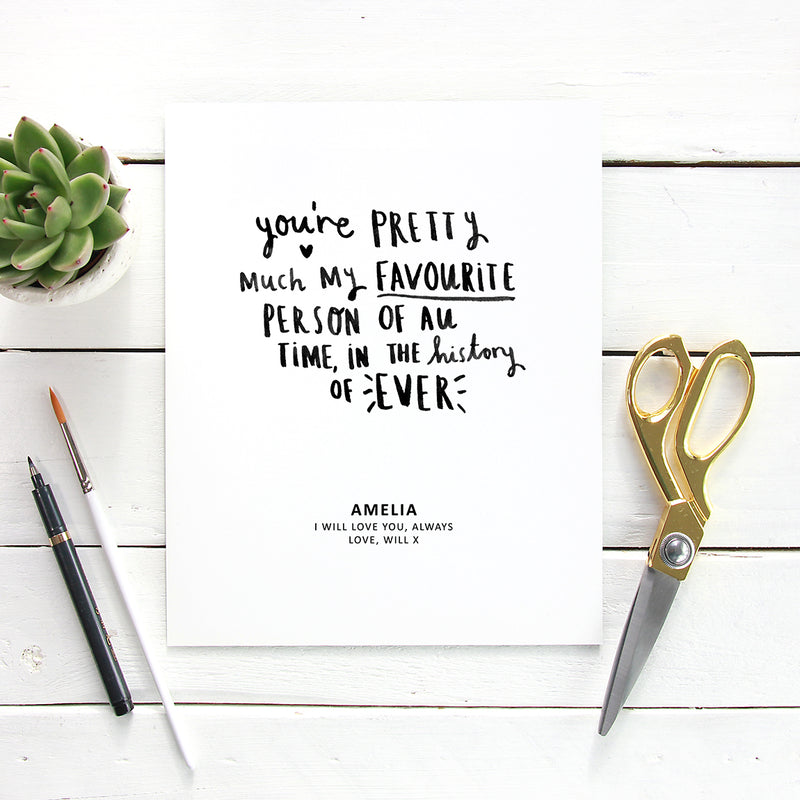 you're PRETTY
MUCH MY FAVOURITE
PERSON OF ALL
TIME, IN THE history
OF EVER
AMELIA
I WILL LOVE YOU, ALWAYS
LOVE, WILL X